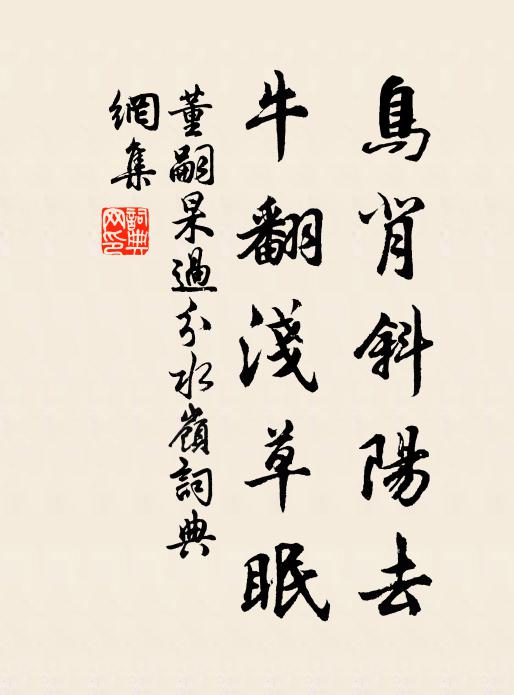 鳥背斜陽去
牛翻淺草眠
董嗣杲過分水嶺詞典
網集
詞典
網印